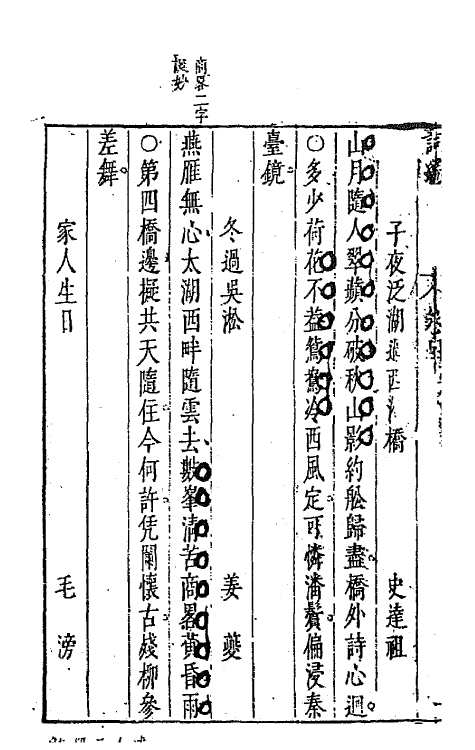 商畧二字
誕妙
子夜泛湖
橋
史達祖
山月隨人翠蘋分破秋山影約舩歸盡橋外詩心迥
○多少荷花不蓋鴛鴦冷西風定可憐潘鬢偏浸秦
臺鏡
冬過吳淞
姜夔
燕雁無心太湖西畔隨雲去數峯清苦商畧黃昏雨
○第四橋邊擬共天隨住今何許凭闌懷古殘柳參
差舞
家人生日
毛滂